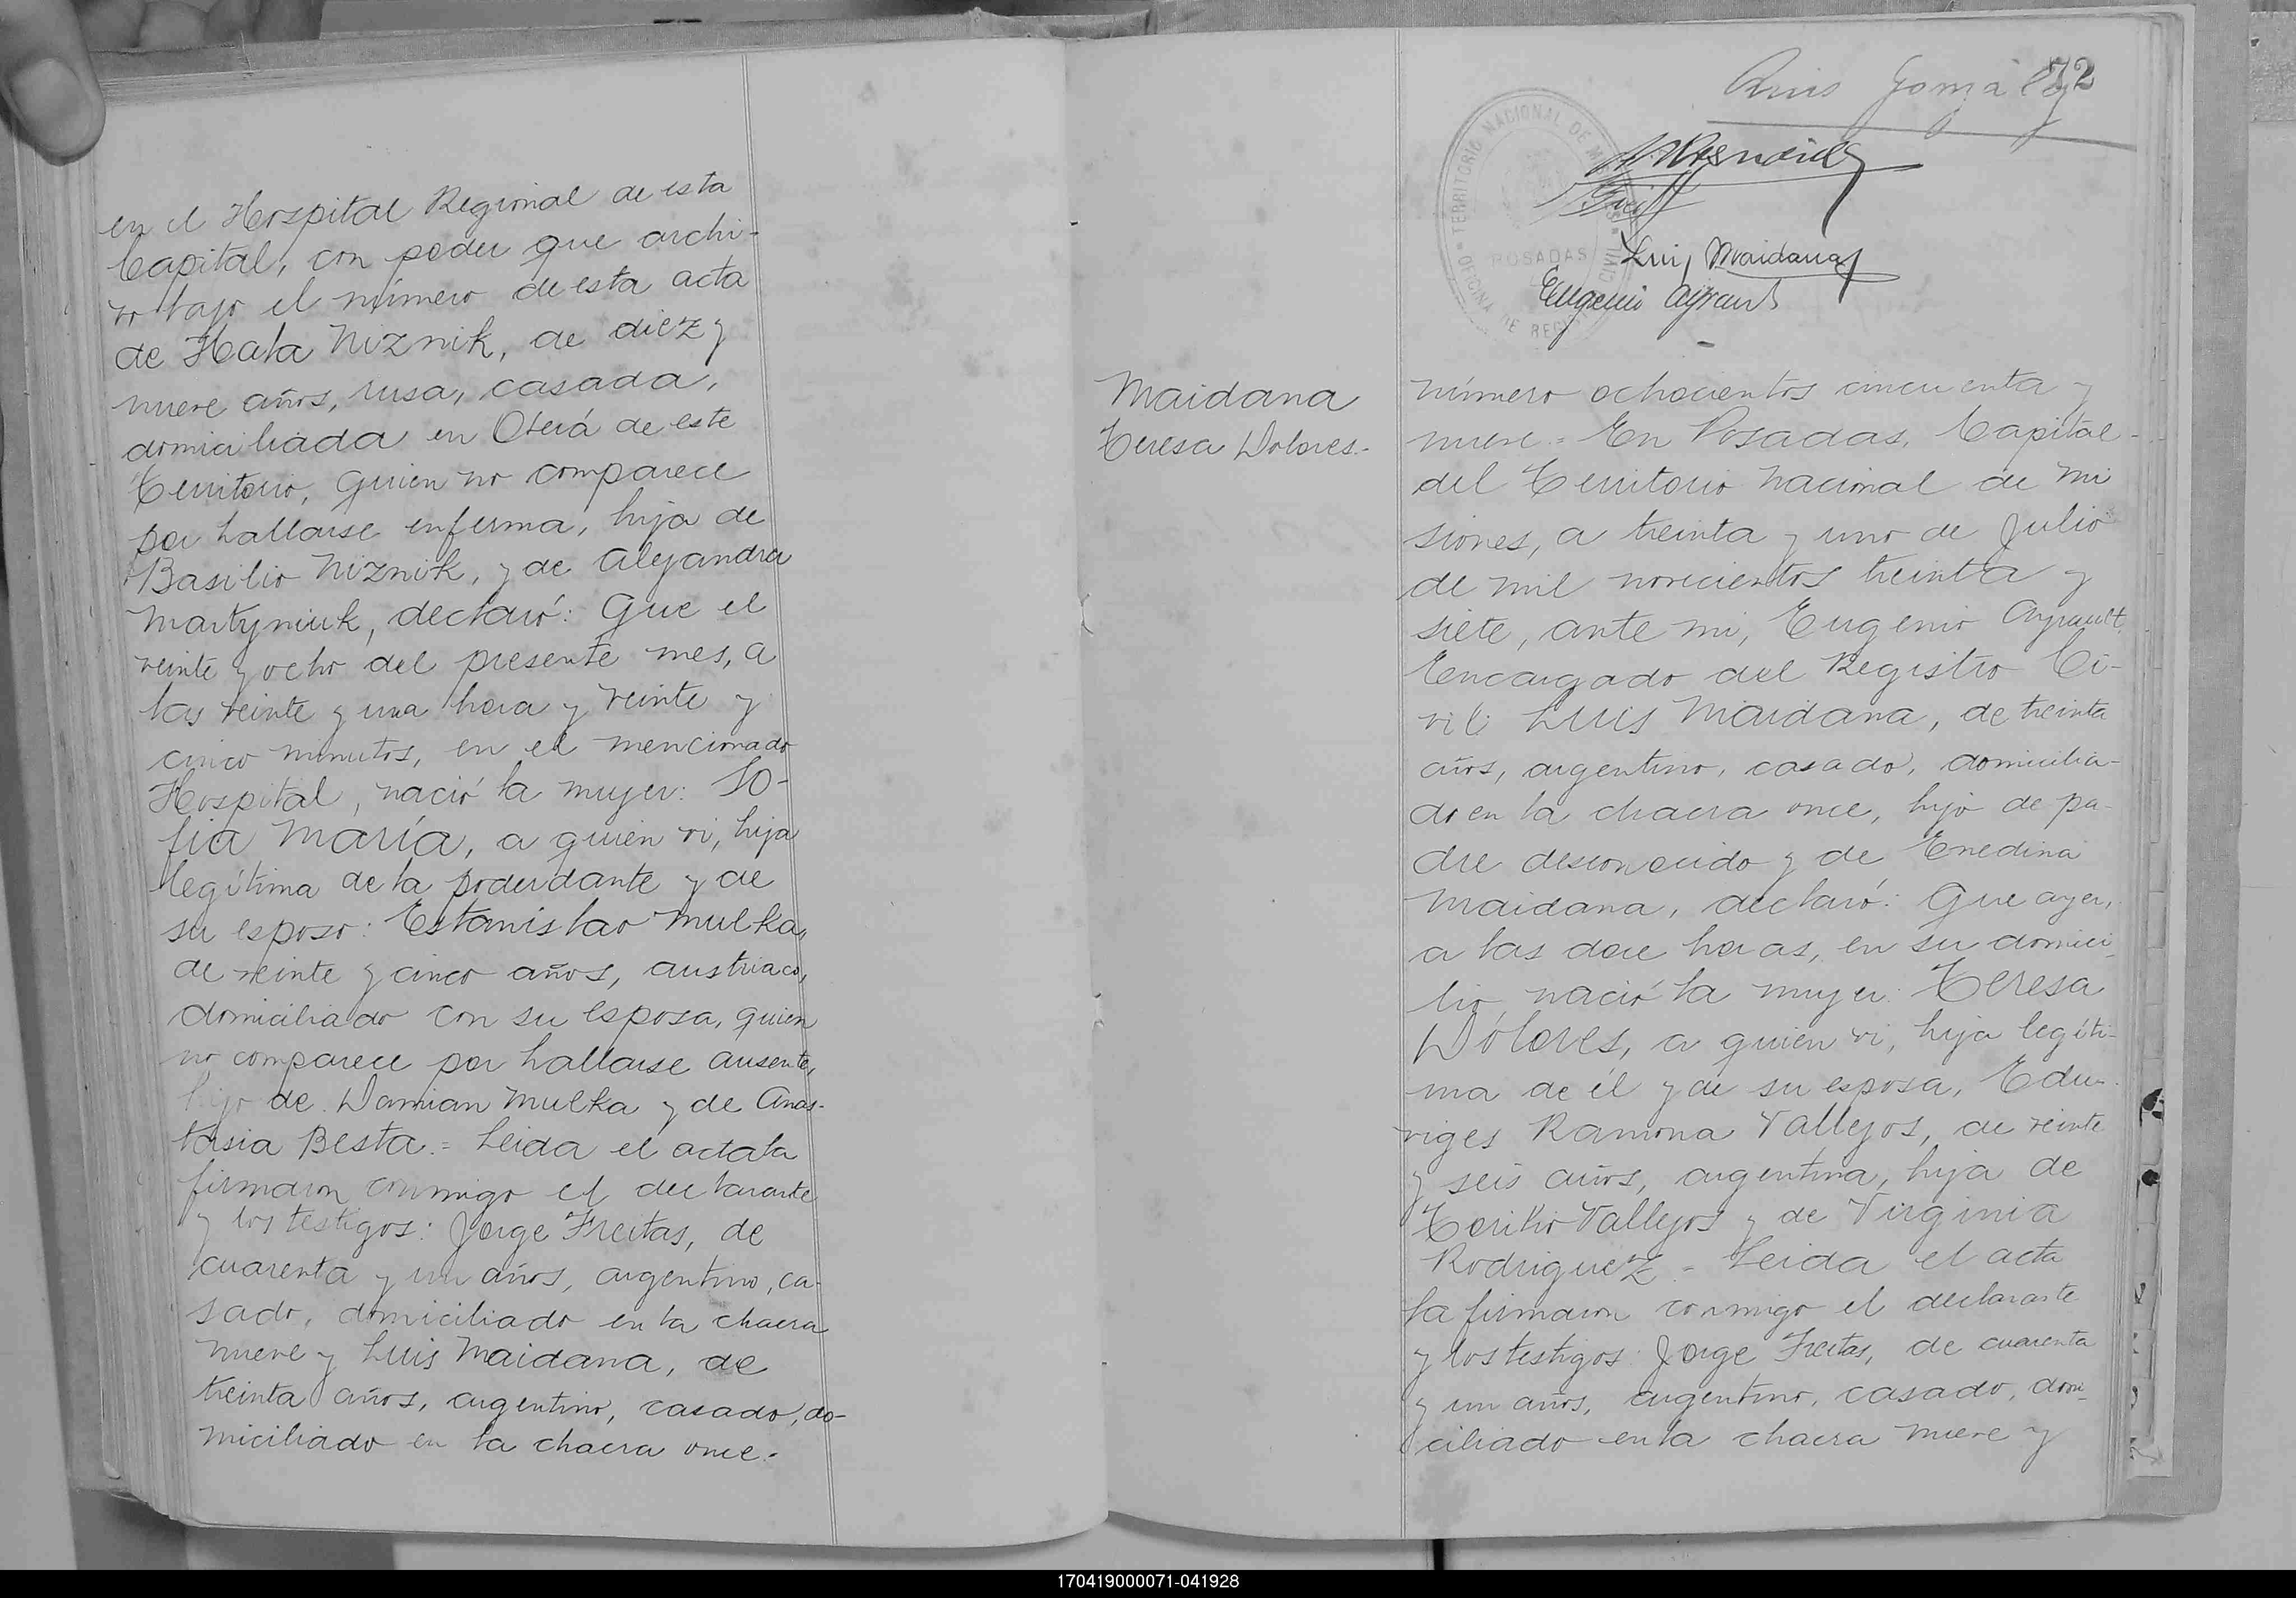 en el Hospital Regional de esta
Capital, con poder que archi-
vo bajo el número de esta acta
de Hala Niznik, de diez y
nueve años, rusa, casada,
domiciliada en Oberá de este
Territorio, quien no comparece
por hallarse enferma, hija de
Basilio Niznik, y de Alejandra
Martyniuk, declaró: Que el
veinte y ocho del presente mes, a
las veinte y una hora y veinte y
cinco minutos, en el mencionado
Hospital, nació la mujer: So-
fia María, a quien vi, hija
legítima de la poderdante y de
su esposo: Estanislao Mulka,
de veinte y cinco años, austriaco,
domiciliado con su esposa, quien
no comparece por hallarse ausente,
hijo de Damian Mulka y de Anas-
tasia Besta.= Leida el acta la
firmaron conmigo el declarante
y los testigos: Jorge Freitas, de
cuarenta y un años, argentino, ca-
sado, domiciliado en la chacra
nueve y Luis Maidana, de
treinta años, argentino, casado, do-
miciliado en la chacra once.-
72
Luis Gonzalez
Luis Maidana
Eugenio Ayrault
TERRITORIO NACIONAL DE MISIONES
POSADAS
OFICINA DE REGISTRO CIVIL
Maidana
Teresa Dolores.-
número ochocientos cincuenta y
nueve.= En Posadas, Capital
del Territorio Nacional de Mi
siones, a treinta y uno de Julio
de mil novecientos treinta y
siete, ante mi, Eugenio Ayrault,
Encargado del Registro Ci-
vil: Luis Maidana, de treinta
años, argentino, casado, domicilia-
do en la chacra once, hijo de pa-
dre desconocido y de Enedina
Maidana, declaró: Que ayer,
a las doce horas, en su domici-
lio, nació la mujer: Teresa
Dolores, a quien vi, hija legíti-
ma de él y de su esposa, Edu-
viges Ramona Vallejos, de veinte
y seis años, argentina, hija de
Toribio Vallejos y de Virginia
Rodriguez.- Leida el acta
la firmaron conmigo el declarante
y los testigos: Jorge Freitas, de cuarenta
y un años, argentino, casado, domi-
ciliado en la chacra nueve y
170419000071-041928